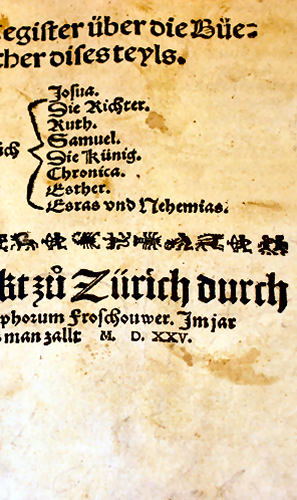 Register über die Büe⸗
cher dises teyls.
Josua.
Die Richter.
Ruth.
Samuel.
Die Künig.
Chronica.
Esther.
Esras vnd Nehemias.
zů Zürich durch
Froschouwer. Im jar
man zallt M. D. XXV.